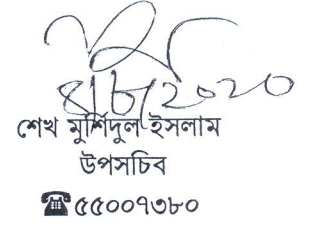 শেখ মুর্শিদুল ইসলাম
উপসচিব
☎৫৫০০৭৩৮০